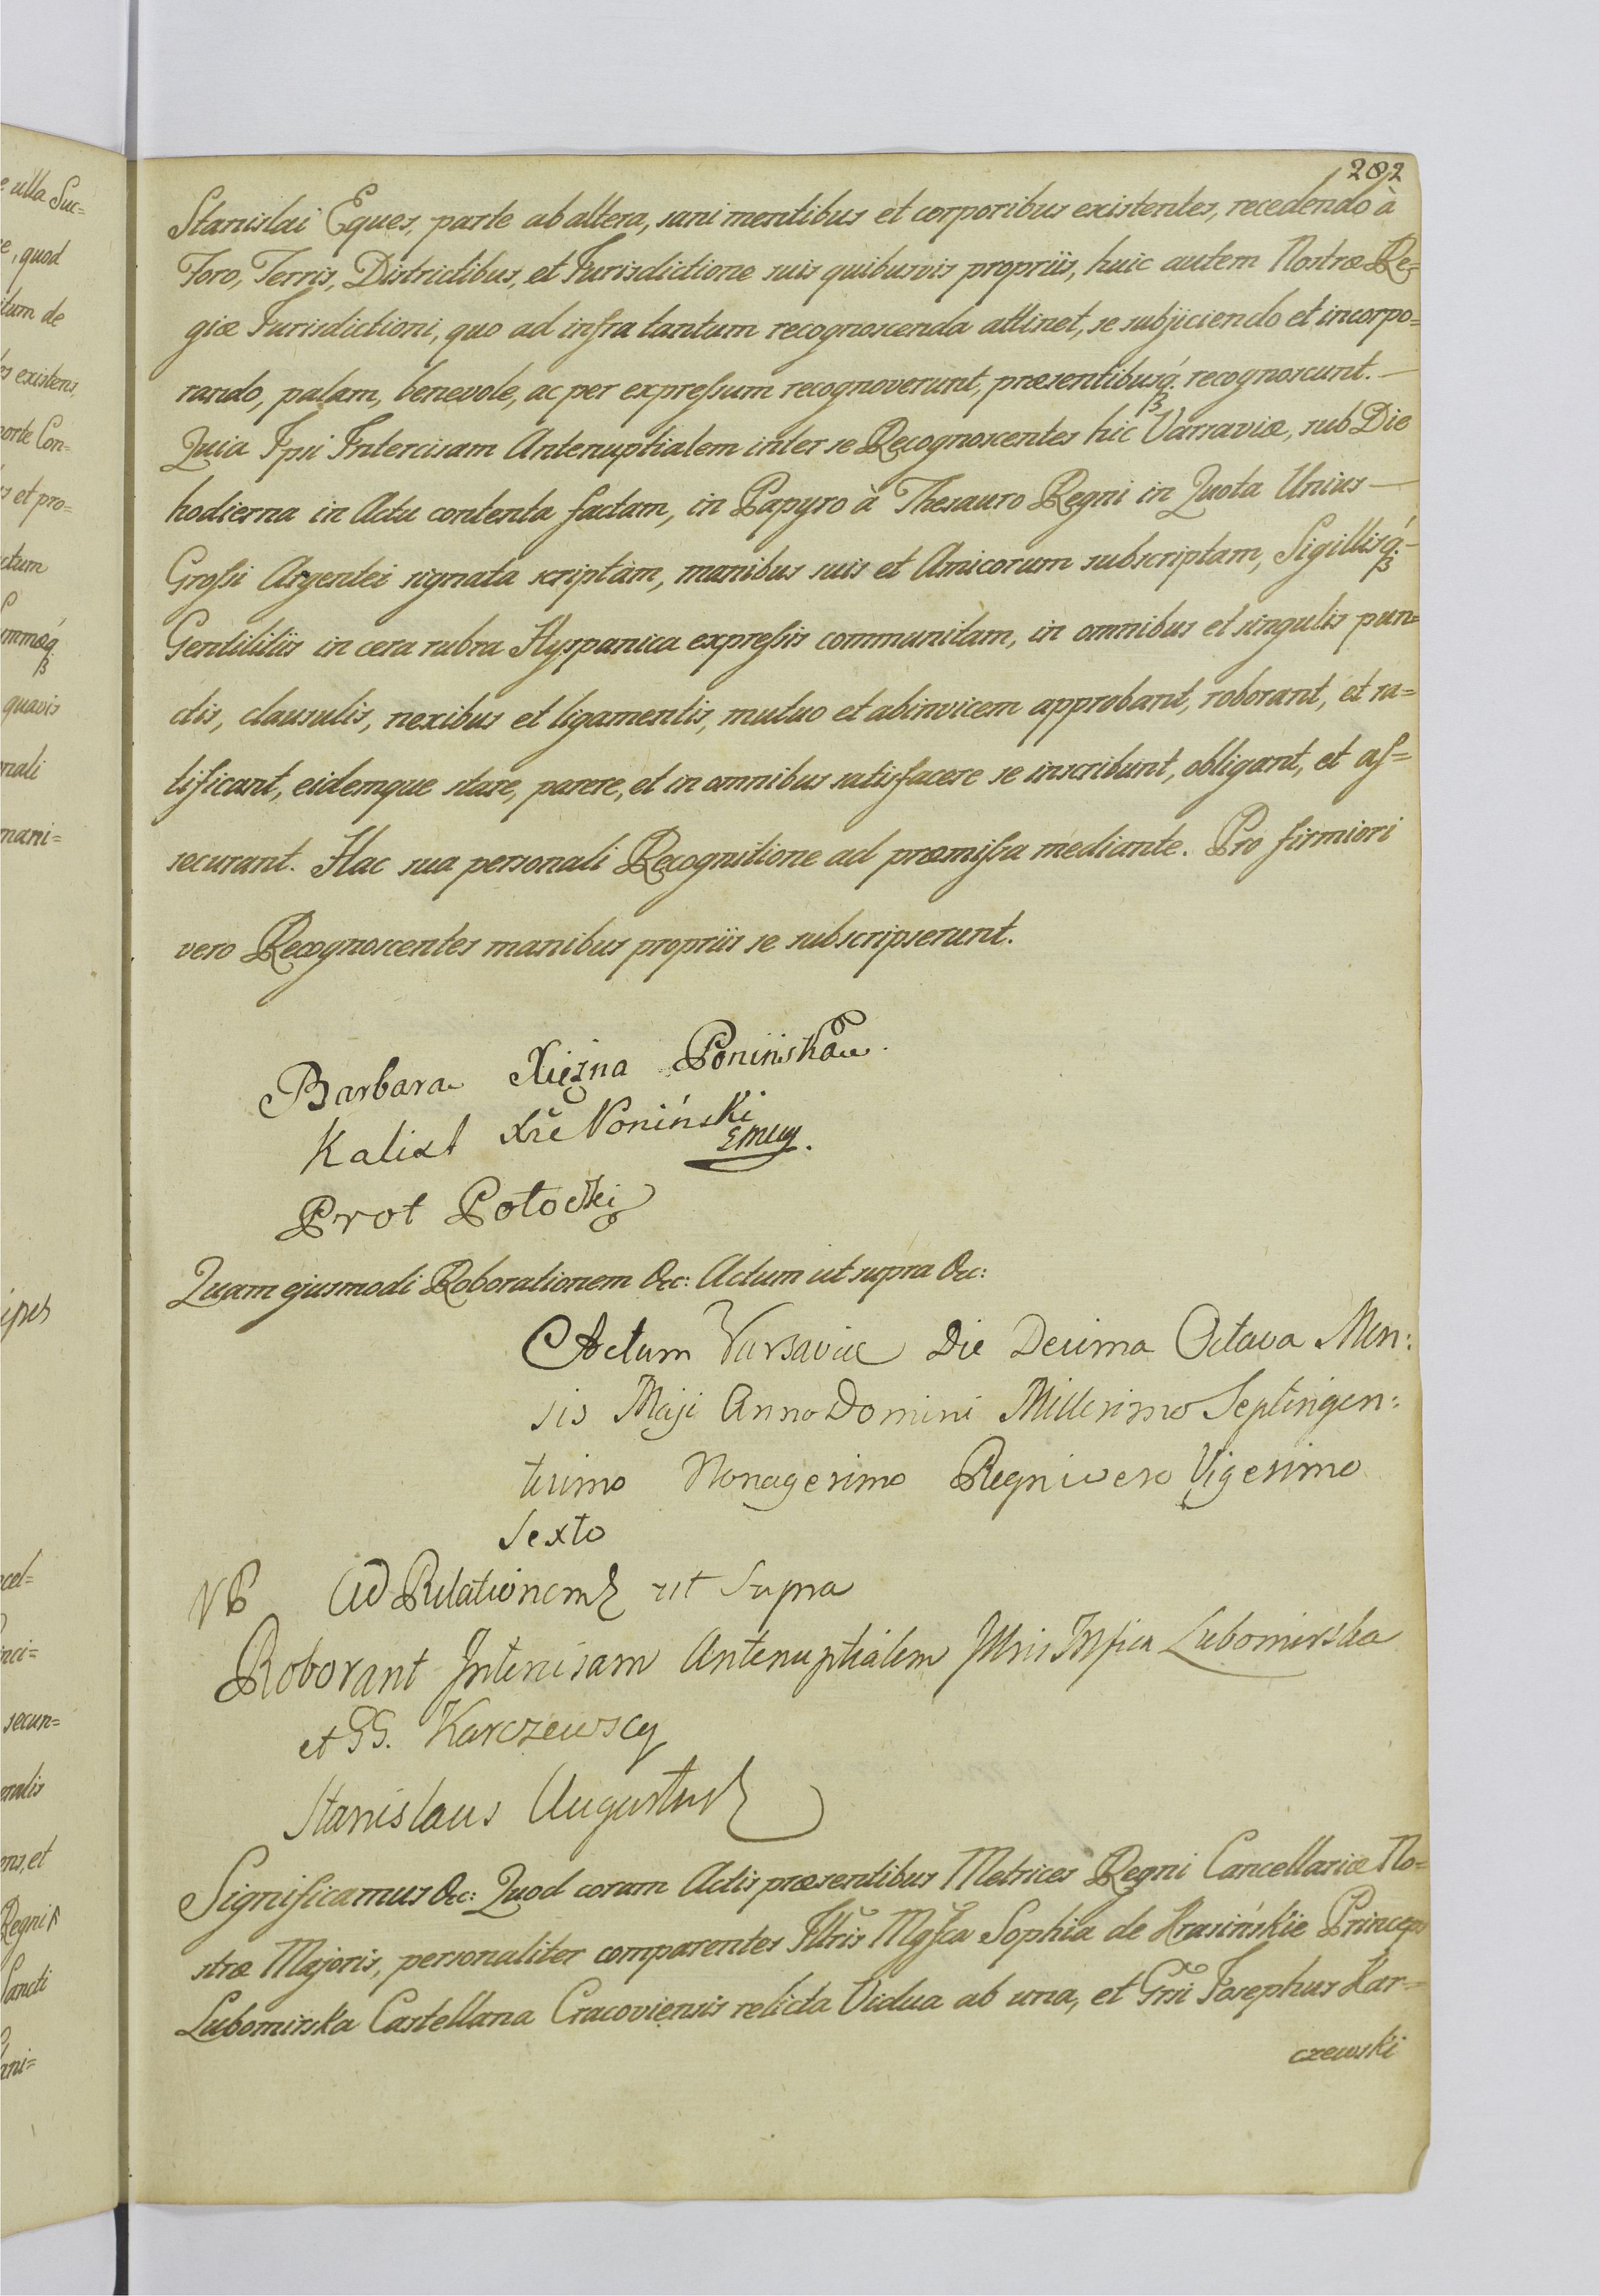 282
Stanislai Eques, parte ab altera, sani mentibus et corporibus existentes, recedendo à
Foro, Terris, Districtibus, et Jurisdictione suis quibusvis propriis, huic autem Nostræ Re=
giæ Jurisdictioni, quo ad infra tantum recognoscenda attinet, se subjiciendo et incorpo=
rando, palam, benevole, ac per expreſsum recognoverunt, præsentibusq́ recognoscunt. —
Quia Ipsi Intercisam Antenuptialem inter se Recognoscentes hic Varsaviæ, sub Die
hodierna in Actu contenta factam, in Papyro à Thesauro Regni in Quota Unius —
Groſsi Argentei signata scriptam, manibus suis et Amicorum subscriptam, Sigillisq́ —
Gentilitiis in cera rubra Hyspanica expreſsis communitam, in omnibus et singulis pun=
ctis, clausulis, nexibus et ligamentis, mutuo et abinvicem approbant, roborant, et ra=
tificant, eidemque stare, parere, et in omnibus satisfacere se inscribunt, obligant, et aſ=
securant. Hac sua personali Recognitione ad præmiſsa mediante. Pro firmiori
vero Recognoscentes manibus propriis se subscripserunt.
Barbara Xiężna Ponińska
Kalixt Xże Poniński
Prot Potocki
Quam ejusmodi Roborationem &c: Actum ut supra &c:
Actum Varsaviae Die Decima Octava Men:
sis Maji Anno Domini Millesimo Septingen:
tesimo Nonagesimo Regni vero Vigesimo
Sexto
Ad Relationem ut Supra
Roborant Intercisam Antenuptialem Jllris Mfica Lubomirska
et GG. Karczewscy
Stanislaus Augustus
Significamus &c: Quod coram Actis præsentibus Metrices Regni Cancellariæ No=
stræ Majoris, personaliter comparentes Illris Mgfca Sophia de Krasińskie Princeps
Lubomirska Castellana Cracoviensis relicta Vidua ab una, et Gnsi Josephus Kar=
czewski